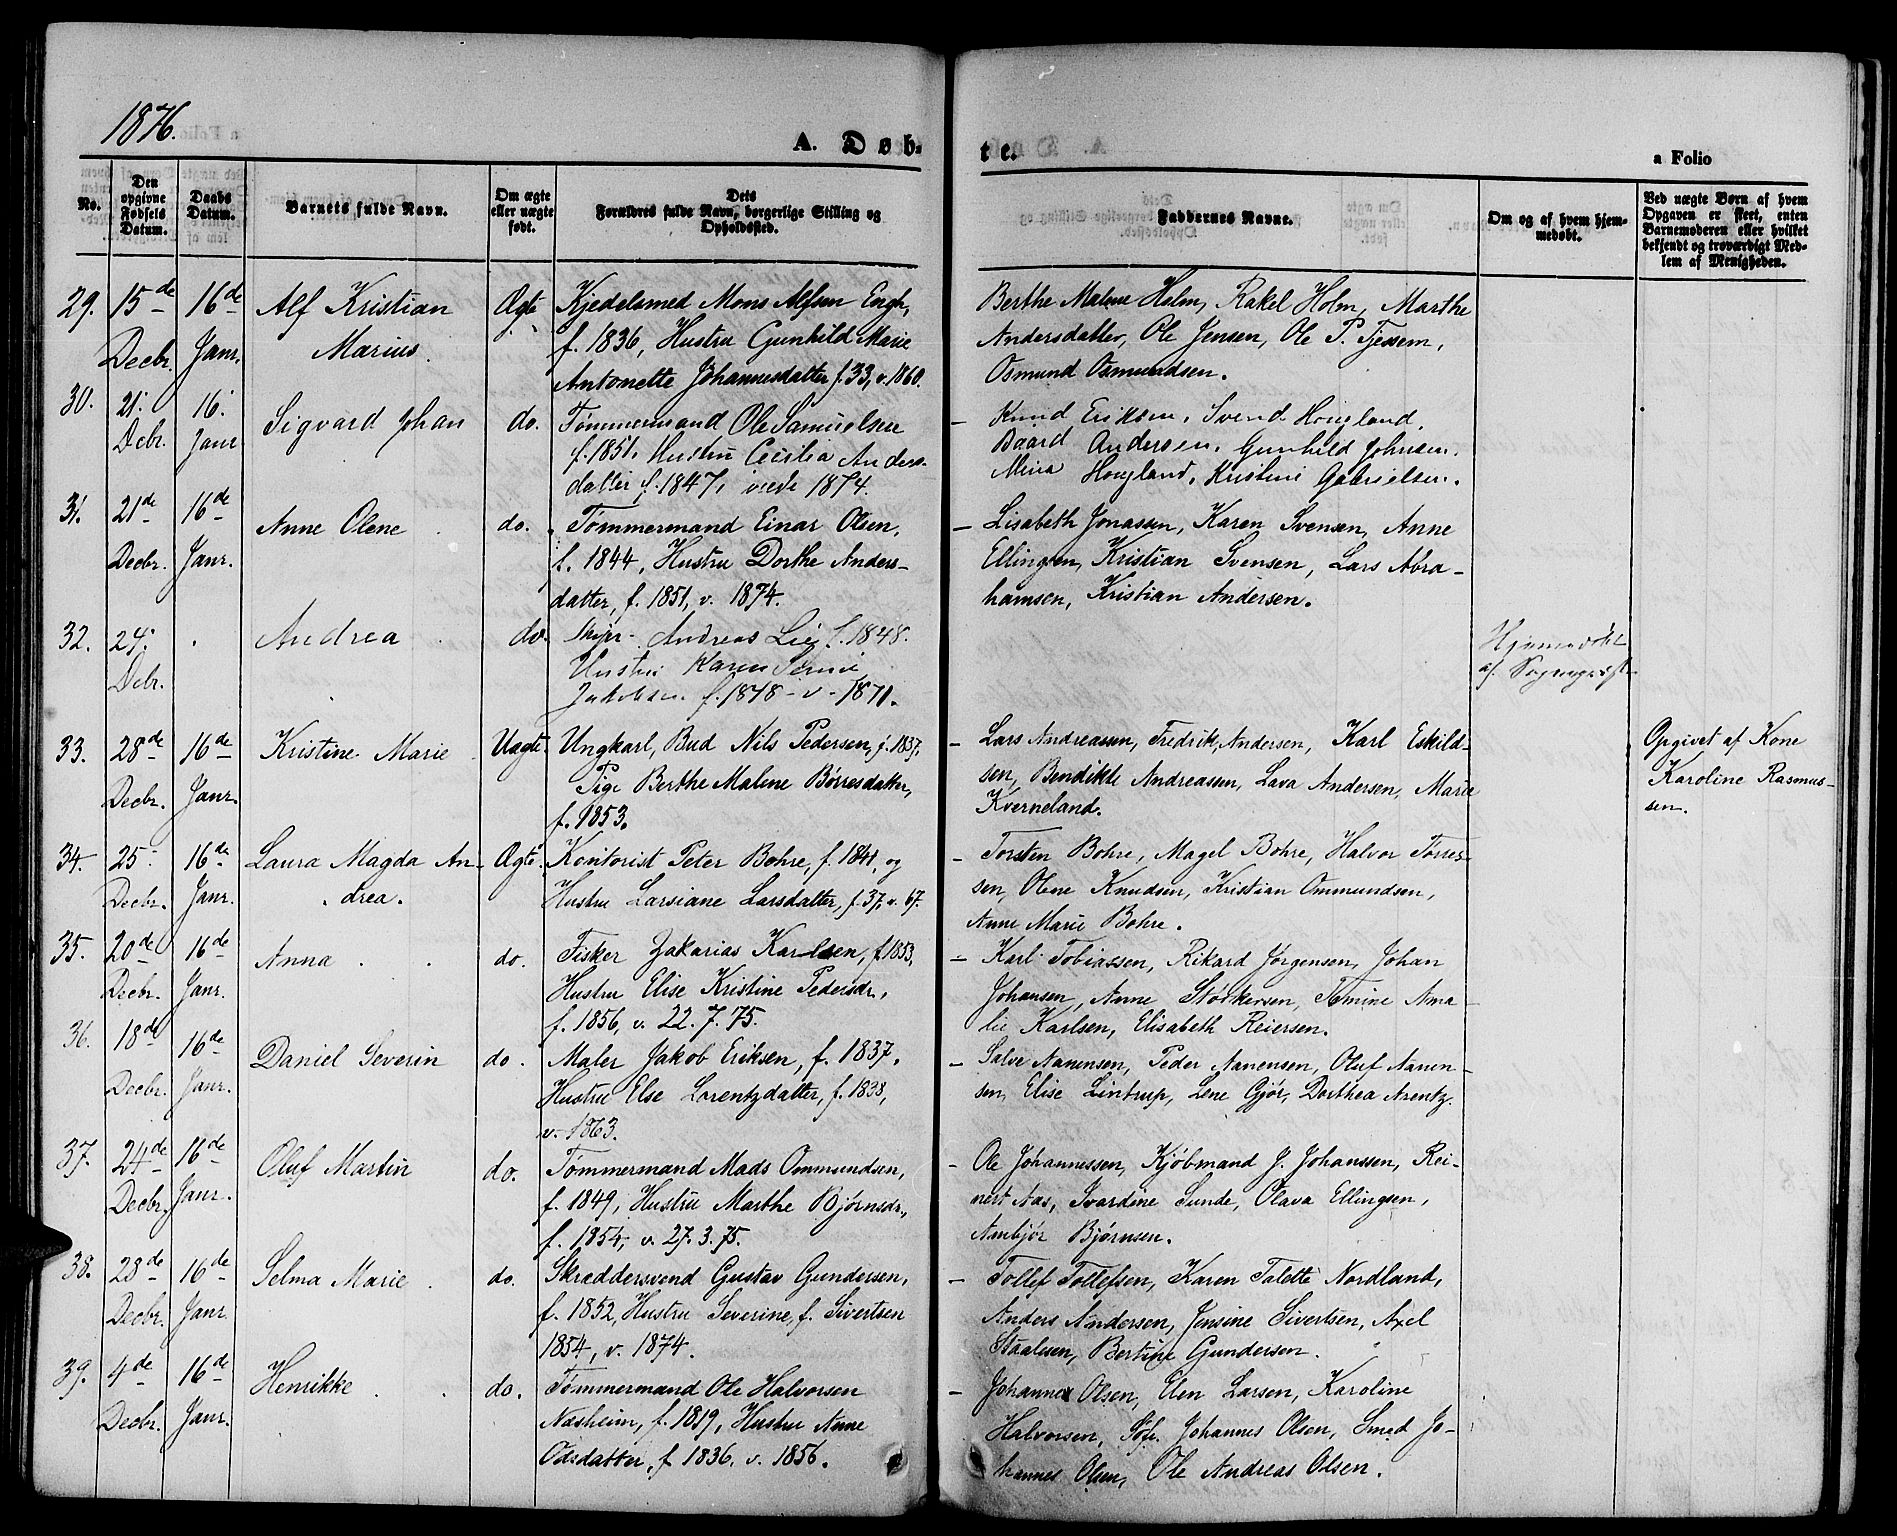 1876.
A. Døb-
te.
a Folio
No.
Den opgivne Fødsels Datum.
Daabs Datum.
Barnets fulde Navn.
Om ægte eller uægte født.
Dets Forældres fulde Navn, borgerlige Stilling og Opholdssted.
Faddernes Navne.
Om og af hvem hjemmedøbt.
Ved uægte Børn af hvem Opgaven er skeet, enten Barnemoderen eller hvilket bekjendt og troværdigt Medlem af Menigheden.
29. 15de Decbr. 16de Janr. Alf Kristian Marius. Ægte
Kjedelsmed Mons Alfsen Engh,
f. 1836, Hustru Gunhild Marie
Antonette Johannesdatter f. 33, v. 1860.
Berthe Malene Holm, Rakel Holm, Marthe
Andersdatter, Ole Jensen, Ole P. Tjessem,
Osmund Osmundsen.
30. 21. Debr. 16. Janr Sigvard Johan do.
Tømmermand Ole Samuelsen
f. 1851. Hustru Cecilia Anders-
datter f. 1847, viede 1874.
- Knud Eriksen, Svend Hougland,
Baard Andersen, Gunhild Johnsen.
Mina Hougland, Kristine Gabrielsen.
31. 21de Decbr. 16de Janr. Anne Olene do.
Tømmermand Einar Olsen,
f. 1844, Hustru Dorthe Anders-
datter, f. 1851, v. 1874.
- Lisabeth Jonassen, Karen Svensen, Anne
Ellingsen, Kristian Svensen, Lars Abra-
hamsen, Kristian Andersen.
32. 24. Debr. Andrea do.
Andreas Lie, f. 1848.
Hustru Karen
Jakobsen f. 1848 - v - 1871.
Hjemmedøbt
af
33. 28de Decbr. 16de Janr. Kristine Marie Uægte
Ungkarl, Bud Nils Pedersen, f. 1837,
Pige Berthe Malene Børresdatter,
f. 1853.
- Lars Andreassen, Fredrik Andersen, Karl Eskild-
sen, Bendikte Andreassen, Lava Andersen, Marie
Kverneland.
Opgivet af Kone
Karoline Rasmus-
sen.
34. 25. Decbr. 16de Janr. Laura Magda An-
drea. Ægte
Kontorist Peter Bohre, f. 1841, og
Hustru Larsiane Larsdatter, f. 37, v. 67.
- Torsten Bohre, Magel Bohre, Halvor Tørres-
sen, Olene Knudsen, Kristian Ommundsen,
Anne Marie Bohre.
35. 20de Decbr. 16de Janr. Anna do.
Fisker Zakarias Karlsen, f. 1853,
Hustru Elise Kristine Pedersdr.,
f. 1856, v. 22. 7. 75.
- Karl Tobiassen, Rikard Jørgensen, Johan
Johansen, Anne Størkersen, Tomine Ama-
lie Karlsen, Elisabeth Reiersen.
36. 18de Decbr. 16de Janr. Daniel Severin do.
Maler Jakob Eriksen, f. 1837,
Hustru Else Lorentzdatter, f. 1838,
v. 1863.
- Salve Nanensen, Peder Nanensen, Oluf Nanen-
sen, Elise Lintrup, Lene Gjør, Dorthea Arentz.
37. 24de Decbr. 16de Janr. Oluf Martin do.
Tømmermand Mads Ommundsen,
f. 1849, Hustru Marthe Bjørnsdr.,
f. 1854, v. 27. 3. 75.
- Ole Johannessen, Kjøbmand J. Johanssen, Rei-
nert Aas, Svardine Sunde, Olava Ellingsen,
Anbjør Bjørnsen.
38. 28de Decbr. 16de Janr. Selma Marie do.
Skræddersvend Gustav Gundersen,
f. 1852, Hustru Severine, f. Sivertsen
1854, v. 1874.
- Tollef Tollefsen, Karen Talette Nordland,
Anders Andersen, Jensine Sivertsen, Axel
Staalesen, Bertine Gundersen.
39. 4de Decbr. 16de Janr. Henrikke do.
Tømmermand Ole Halvorsen
Næsheim, f. 1819, Hustru Anne
Odsdatter, f. 1836, v. 1856.
- Johanne Olsen, Elen Larsen, Karoline
Halvorsen, Søf. Johannes Olsen, Smed Jo-
hannes Olsen, Ole Andreas Olsen.